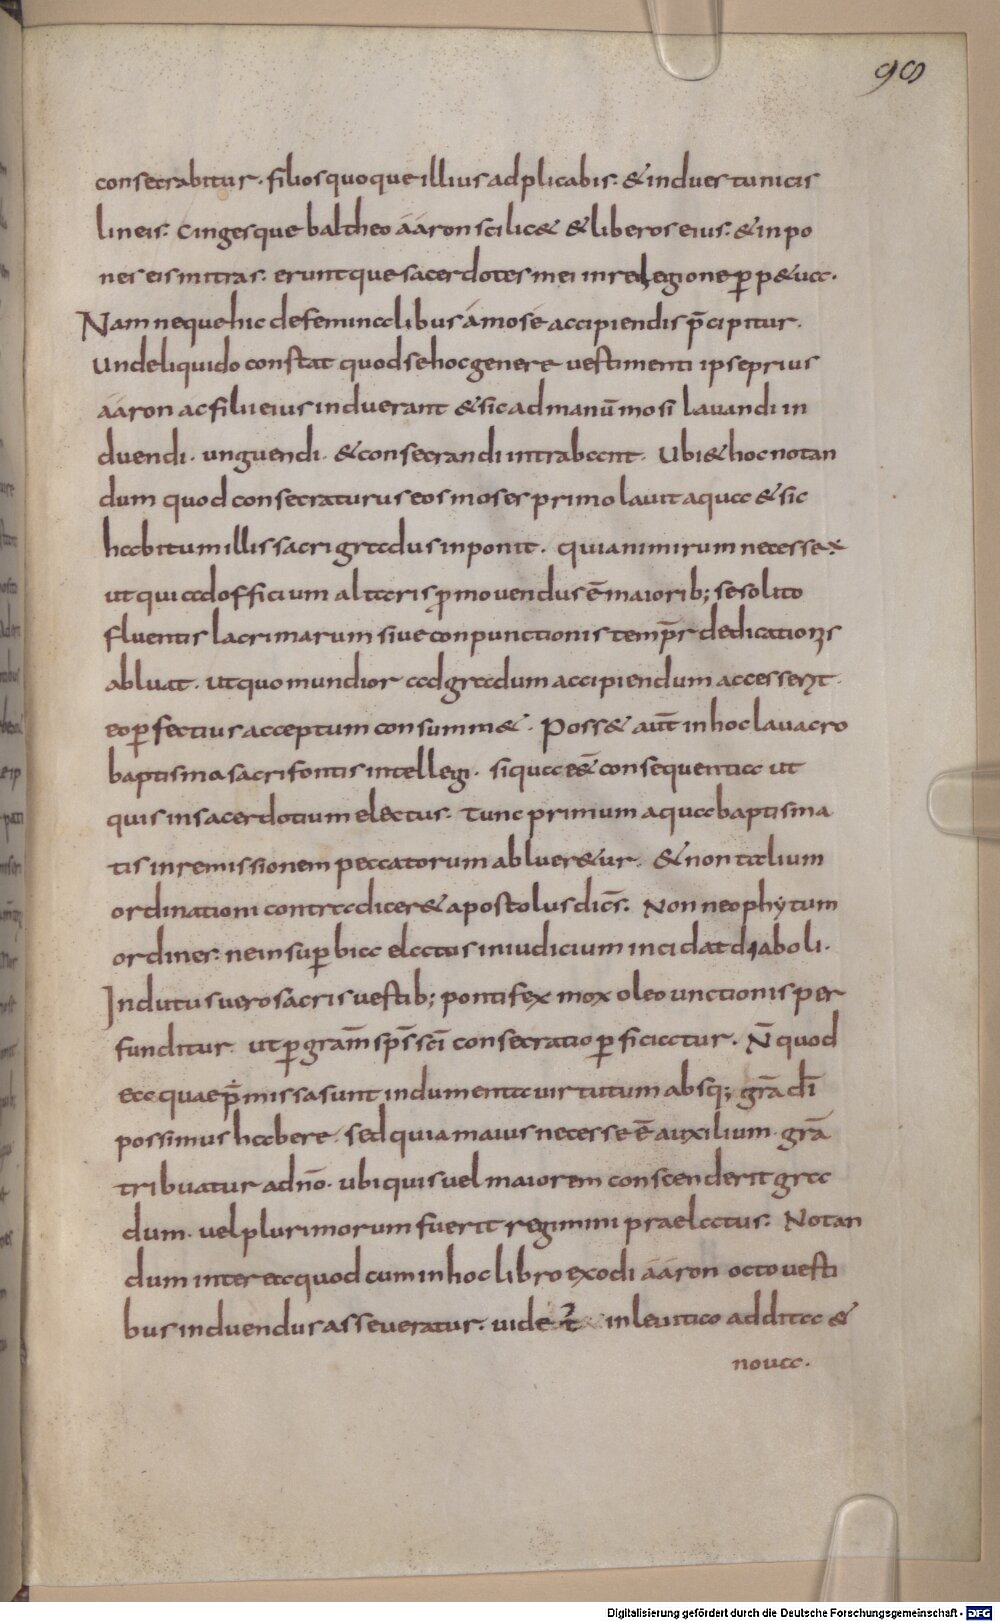 98
consecrabitur. filios quoque illius adplicabis. & indues tunicis
lineis. Cingesque baltheo ááron scilic& & liberos eius. & inpo
nes eis mitras. eruntque sacerdotes mei in relegione ꝑp&ua.
Nam neque hic de feminalibus á mosé accipiendis p̄cipitur.
Unde liquido constat quod se hoc genere vestimenti ipse prius
ááron ac filii eius induerant & sic ad manū mosi lavandi in
duendi. unguendi. & consecrandi intrabant. Ubi & hoc notan
dum quod consecraturus eos moses primo lavit aqua & sic
habitum illis sacri gradus inponit. quia nimirum necesse ÷
ut qui ad officium altaris ꝓmovendus ē maiorib; se solito
fluentis lacrimarum sive conpunctionis temp̄r dedicationis
abluat. ut quo mundior ad gradum accipiendum accesserit.
eo ꝑfectius acceptum consumm&. Poss& aūt in hoc lavacro
baptisma sacri fontis intellegi. siqua e&̄ consequentia ut
quis in sacerdotium electus. tunc primum aqua baptisma
tis in remissionem peccatorum abluer&ur. & non talium
ordinationi contradicer& apostolus dicēs. Non neophytum
ordines. ne in suꝑbia elatus in iudicium incidat diaboli.
Indutus vero sacris vestib; pontifex mox oleo unctionis per
funditur. ut ꝑ gram̄ sp̄s sc̄i consecratio ꝑficiatur. N̄ quod
ea quae p̄missa sunt indumenta virtutum absq; grā dī
possimus habere. sed quia maius necesse ē auxilium grā
tribuatur ad nō. ubi quis vel maiorem conscenderit gra
dum. vel plurimorum fuerit regimini praelatus. Notan
dum inter ea quod cum in hoc libro exodi ááron octo vesti
bus induendus asseveratur. vide in levitico addita &
nova.
Digitalisierung gefördert durch die Deutsche Forschungsgemeinschaft - DFG